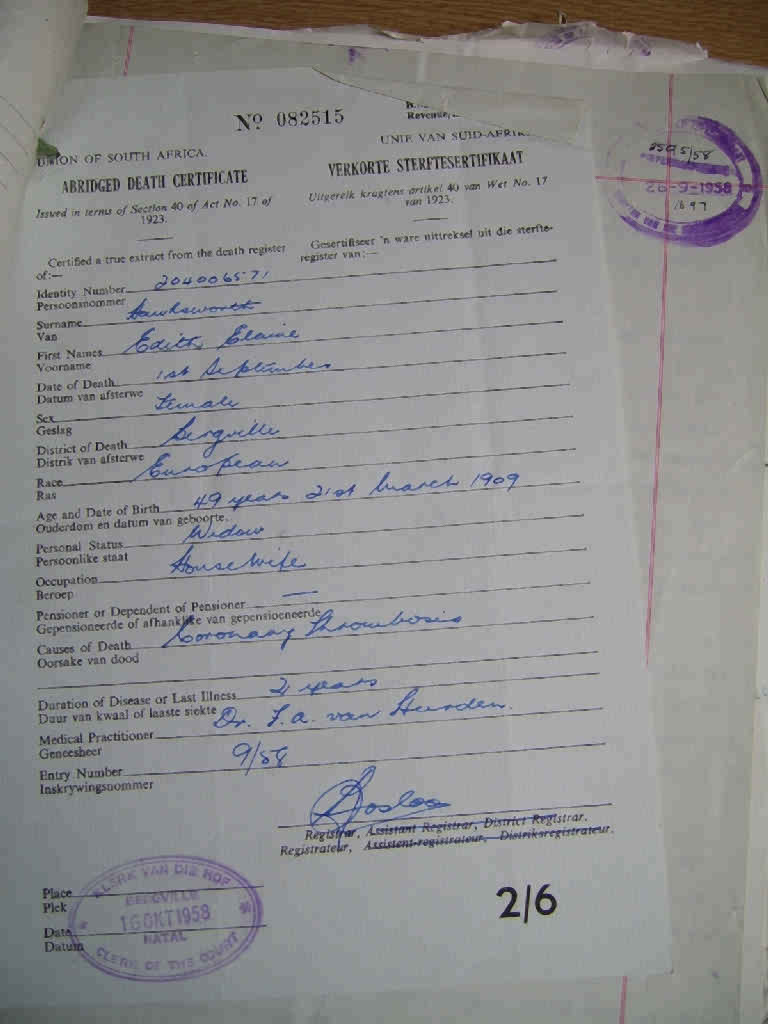 Nº 082515
Revenue,
UNION OF SOUTH AFRICA.
UNIE VAN SUID-AFRIK
ABRIDGED DEATH CERTIFICATE
VERKORTE STERFTESERTIFIKAAT
Issued in terms of Section 40 of Act No. 17 of
1923.
Uitgereik kragtens artikel 40 van Wet No. 17
van 1923.
Certified a true extract from the death register
of:—
Gesertifiseer 'n ware uittreksel uit die sterfte-
register van:—
Identity Number 204006571
Persoonsnommer
Surname Hawksworth
Van
First Names Edith Elaine
Voorname
Date of Death 1st September
Datum van afsterwe
Sex Female
Geslag
District of Death Bergville
Distrik van afsterwe
Race European
Ras
Age and Date of Birth 49 years 21st March 1909
Ouderdom en datum van geboorte.
Personal Status Widow
Persoonlike staat
Occupation Housewife
Beroep
Pensioner or Dependent of Pensioner —
Gepensioeneerde of afhanklike van gepensioeneerde
Causes of Death Coronary Thrombosis
Oorsake van dood
Duration of Disease or Last Illness 2 years
Duur van kwaal of laaste siekte
Medical Practitioner Dr. F. A. van Heerden.
Geneesheer
Entry Number 9/58
Inskrywingsnommer
Registrar, Assistant Registrar, District Registrar.
Registrateur, Assistent-registrateur, Distriksregistrateur.
Place
Plek
Date
Datum
KLERK VAN DIE HOF
BERGVILLE
16 OKT 1958
NATAL
CLERK OF THE COURT
2/6
2595/58
26-9-1958